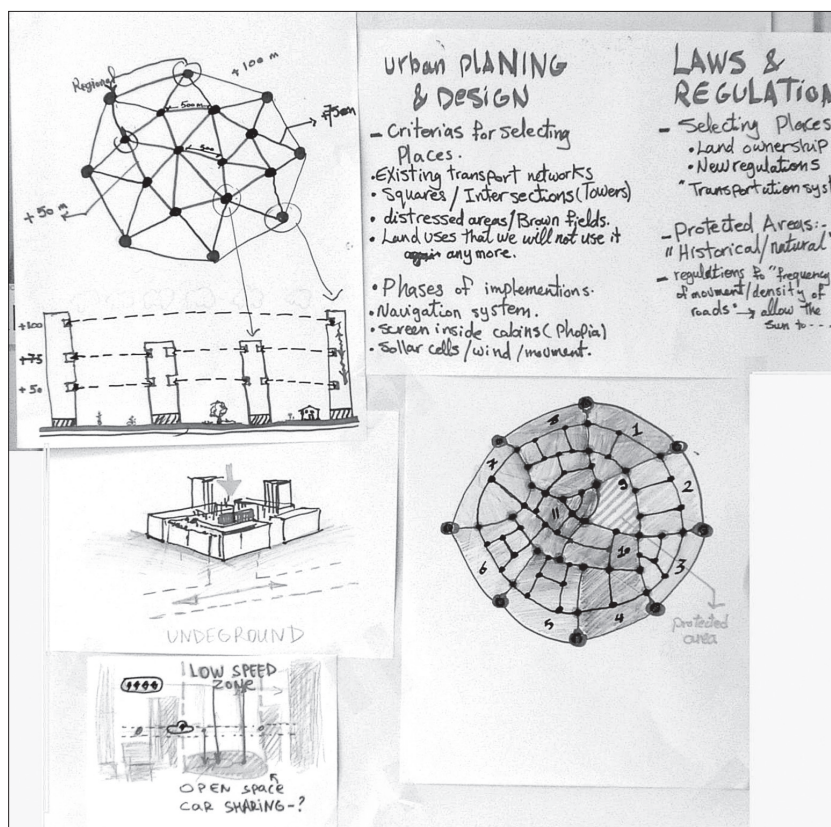 Regional
+100 m
500m
+75m
500
+50 m
+100
+75
+50
urban PLANING
& DESIGN
- Criterias for selecting
Places.
• Existing transport networks
• Squares / Intersections (Towers)
• distressed areas/Brown fields.
• Land uses that we will not use it
any more.
• Phases of implementions.
• Navigation system.
• Screen inside cabins (Phopia)
• Sollar cells /wind /movment.
LAWS &
REGULATION
- Selecting Places
• Land ownership
• New regulations
"Transportation syst
- Protected Areas:-
"Historical/natural"
- regulations fo "frequency
of movment/density of
roads" → allow the
sun to ----
UNDEGROUND
8
1
7
9
2
11
10
6
3
5
4
protected
area
LOW SPEED
ZONE
OPEN SPACE
CAR SHARING-?